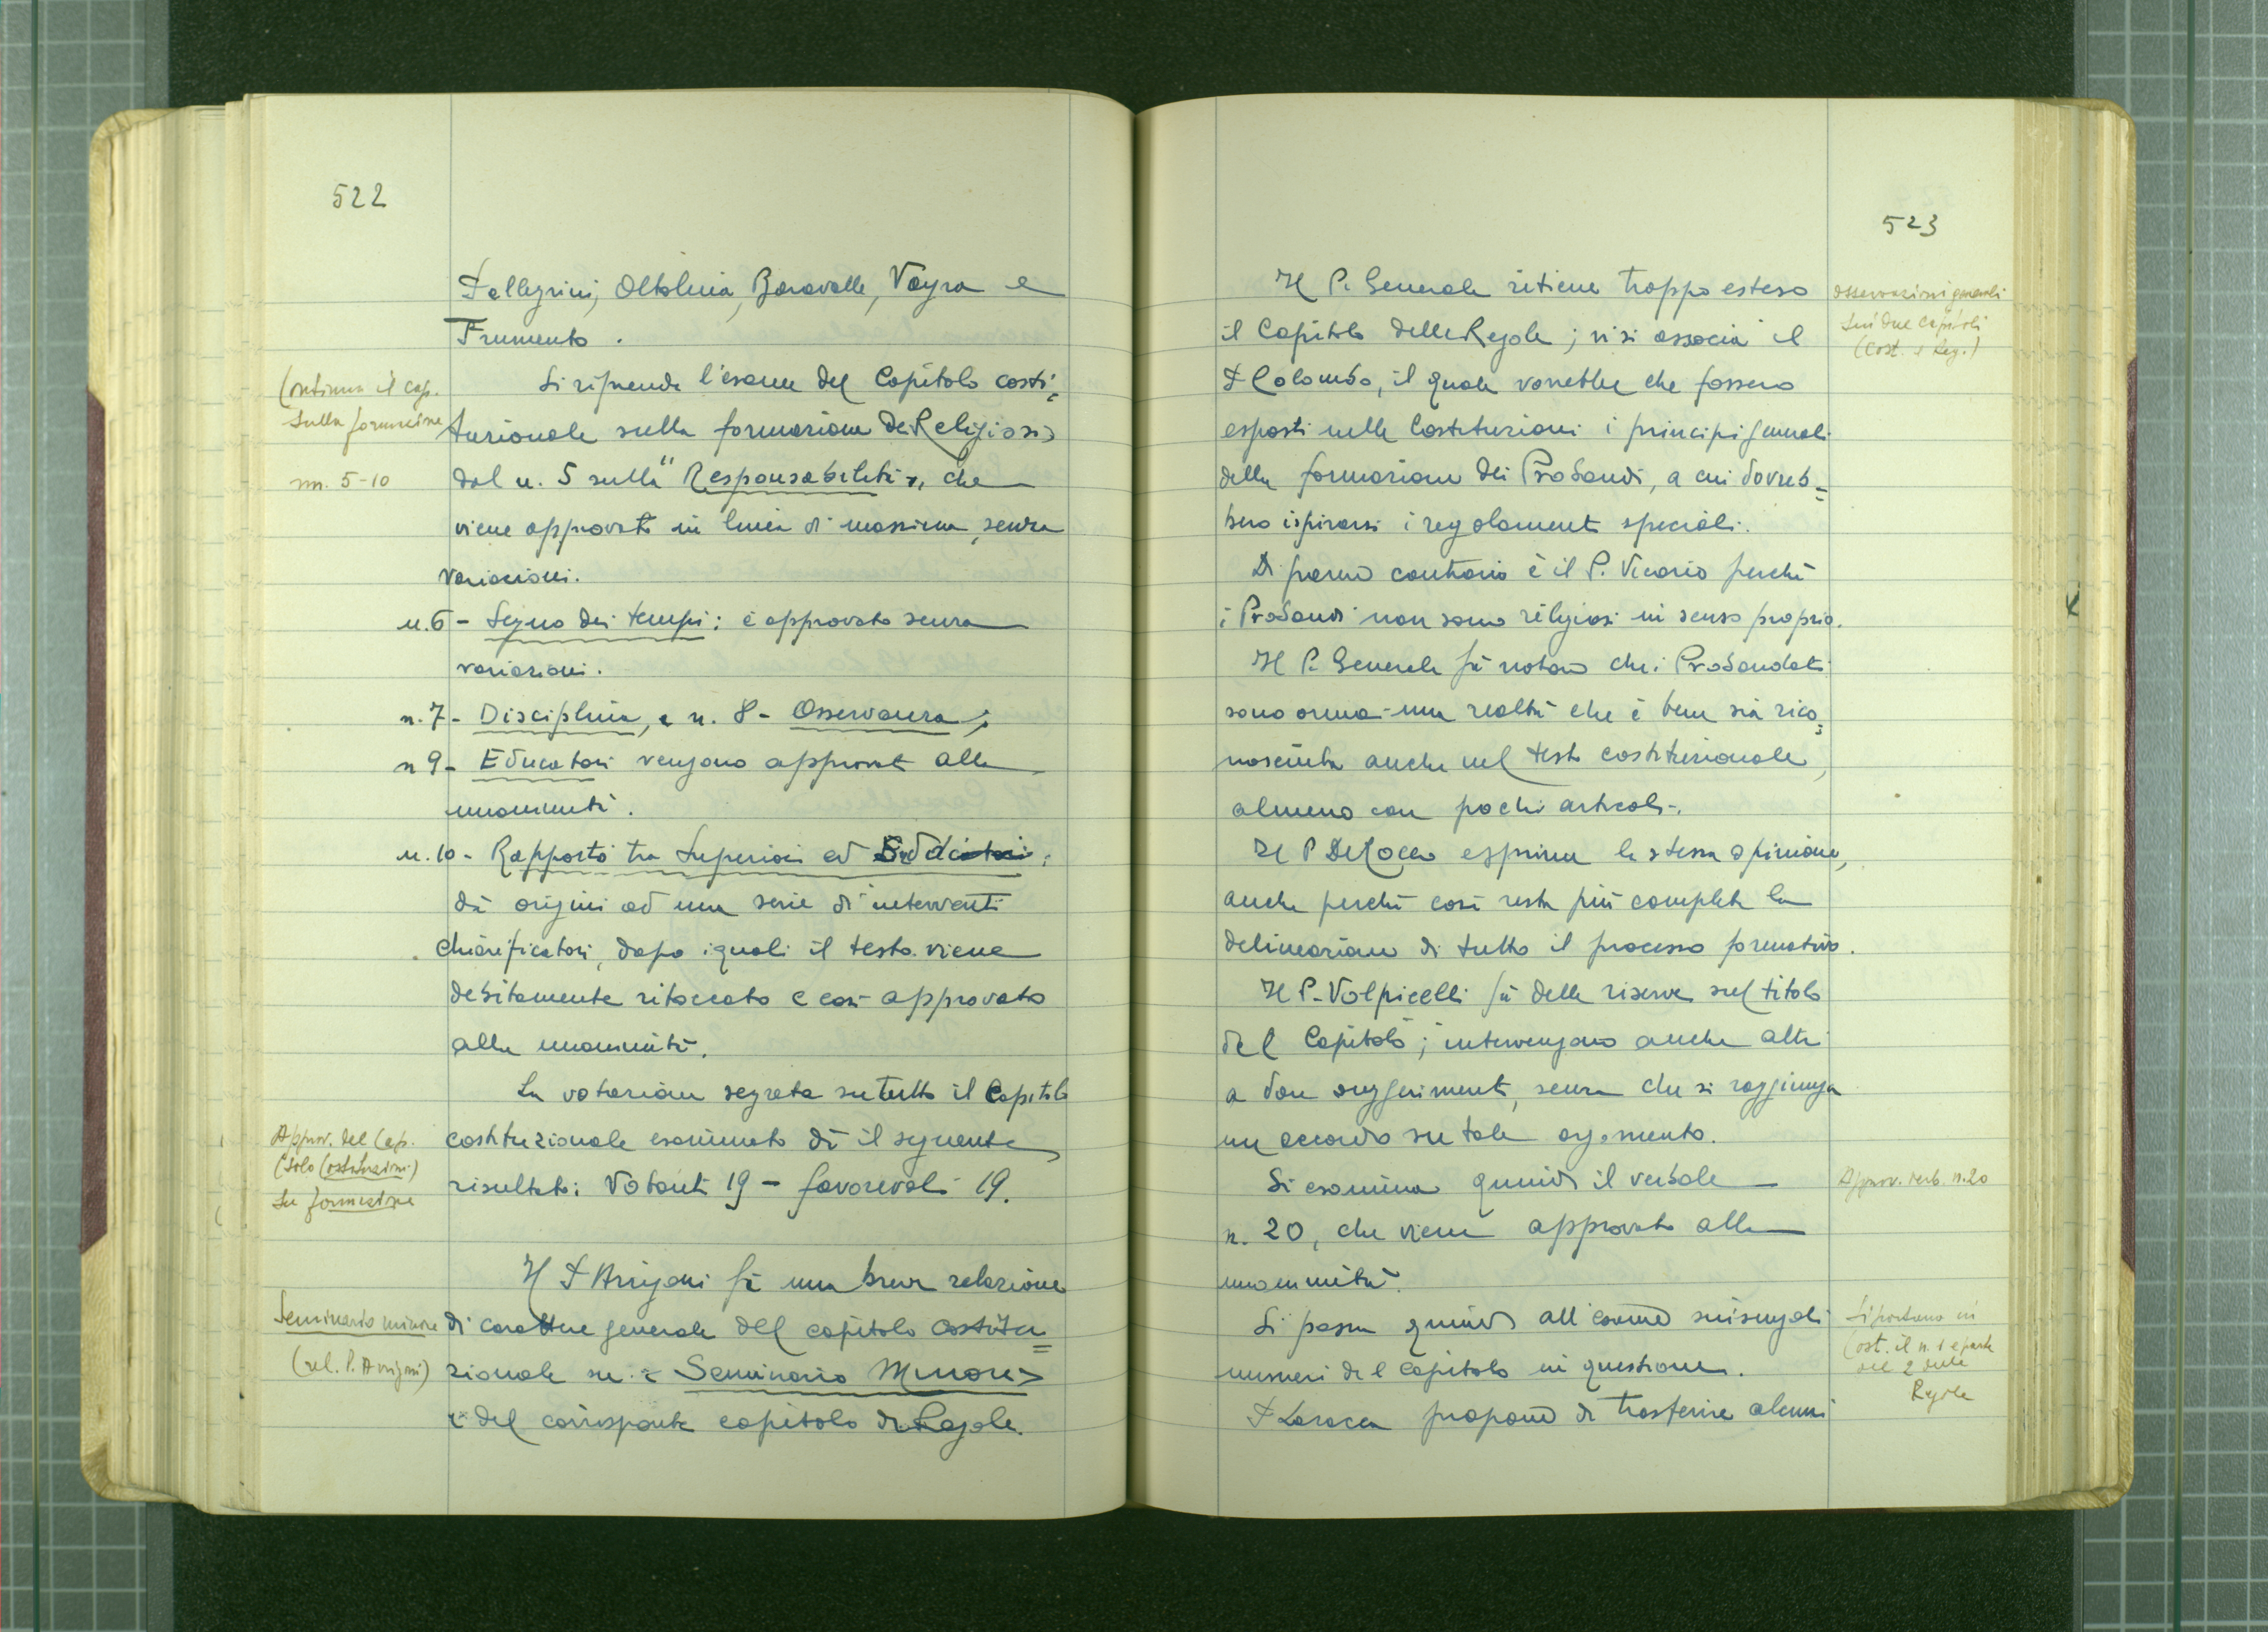 522
Pellegrini, Oltolina, Baravalle, Vayra e
Frumento.
Continua il cap.
sulla formazione
nn. 5-10
Si riprende l'esame del Capitolo costi=
tuzionale sulla formazione dei Religiosi
dal n. 5 sulla "Responsabilità", che
viene approvato in linea di massima, senza
variazioni.
n. 6 - Segno dei tempi: è approvato senza
variazioni.
n. 7 - Disciplina, e n. 8 - Osservanza;
n 9 - Educatori vengono approvati alla
unanimità.
n. 10 - Rapporto tra Superiori ed
dà origini ad una serie di interventi
chiarificatori, dopo i quali il testo viene
debitamente ritoccato e così approvato
alla unanimità.
La votazione segreta su tutto il Capitolo
Approv. del Cap.
(solo Costituzioni)
su formazione
costituzionale esaminato dà il seguente
risultato: Votanti 19 - favorevoli 19.
Il P Arrigoni fà una breve relazione
Seminario minore
(rel. P. Arrigoni)
di carattere generale del capitolo costitu=
zionale su: "Seminario Minore"
e del corrispente capitolo di Regole.
523
Il P. Generale ritiene troppo esteso
il Capitolo delle Regole; vi si associa il
P Colombo, il quale vorrebbe che fossero
esposti nelle Costituzioni i principi generali
della formazione dei Probandi, a cui dovreb=
bero ispirarsi i regolamenti speciali.
osservazioni generali
sui due capitoli
(Cost. e Reg.)
Di parere contrario è il P. Vicario perchè
i Probandi non sono religiosi in senso proprio.
Il P. Generale fà notare che i Probandati
sono ormai una realtà che è bene sia rico=
nosciuta anche nel testo costituzionale,
almeno con pochi articoli.
Il P De Rocco esprime la stessa opinione,
anche perchè così resta più completa la
delineazione di tutto il processo formativo.
Il P. Volpicelli fà delle riserve sul titolo
del Capitolo; intervengono anche altri
a dare suggerimenti, senza che si raggiunga
un accordo su tale argomento.
Si esamina quindi il verbale
n. 20, che viene approvato alla
unanimità.
Approv. verb. n. 20
Si passa quindi all'esame sui singoli
numeri del Capitolo in questione.
P Laracca propone di trasferire alcuni
Si portano in
Cost. il n. 1 e parte
del 2 delle
Regole